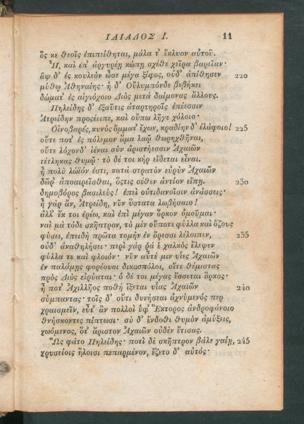 ΙΛΙΑΔΟΣ Ι. 11
ὅς κε θεοῖς ἐπιπείθηται, μάλα τ' ἔκλυον αὐτοῦ.
Ἦ, καὶ ἐπ' ἀργυρέῃ κώπῃ σχέθε χεῖρα βαρεῖαν·
ἂψ δ' ἐς κουλεὸν ὦσε μέγα ξίφος, οὐδ' ἀπίθησεν 220
μύθῳ Ἀθηναίης· ἡ δ' Οὐλυμπόνδε βεβήκει
δώματ' ἐς αἰγιόχοιο Διὸς μετὰ δαίμονας ἄλλους.
Πηλείδης δ' ἐξαῦτις ἀταρτηροῖς ἐπέεσσιν
Ἀτρείδην προσέειπε, καὶ οὔπω λῆγε χόλοιο·
Οἰνοβαρές, κυνὸς ὄμματ' ἔχων, κραδίην δ' ἐλάφοιο! 225
οὔτε ποτ' ἐς πόλεμον ἅμα λαῷ θωρηχθῆναι,
οὔτε λόχονδ' ἰέναι σὺν ἀριστήεσσιν Ἀχαιῶν
τέτληκας θυμῷ· τὸ δέ τοι κὴρ εἴδεται εἶναι.
ἦ πολὺ λώϊόν ἐστι, κατὰ στρατὸν εὐρὺν Ἀχαιῶν
δῶρ' ἀποαιρεῖσθαι, ὅςτις σέθεν ἀντίον εἴπῃ. 230
δημοβόρος βασιλεύς! ἐπεὶ οὐτιδανοῖσιν ἀνάσσεις·
ἦ γὰρ ἄν, Ἀτρείδη, νῦν ὕστατα λωβήσαιο!
ἀλλ' ἔκ τοι ἐρέω, καὶ ἐπὶ μέγαν ὅρκον ὀμοῦμαι·
ναὶ μὰ τόδε σκῆπτρον, τὸ μὲν οὔποτε φύλλα καὶ ὄζους
φύσει, ἐπειδὴ πρῶτα τομὴν ἐν ὄρεσσι λέλοιπεν, 235
οὐδ' ἀναθηλήσει· περὶ γάρ ῥά ἑ χαλκὸς ἔλεψεν
φύλλα τε καὶ φλοιόν· νῦν αὖτέ μιν υἷες Ἀχαιῶν
ἐν παλάμῃς φορέουσι δικασπόλοι, οἵτε θέμιστας
πρὸς Διὸς εἰρύαται· ὁ δέ τοι μέγας ἔσσεται ὅρκος·
ἦ ποτ' Ἀχιλλῆος ποθὴ ἵξεται υἷας Ἀχαιῶν 240
σύμπαντας· τοῖς δ' οὔτι δυνήσεαι ἀχνύμενός περ
χραισμεῖν, εὖτ' ἂν πολλοὶ ὑφ' Ἕκτορος ἀνδροφόνοιο
θνήσκοντες πίπτωσι· σὺ δ' ἔνδοθι θυμὸν ἀμύξεις,
χωόμενος, ὅτ' ἄριστον Ἀχαιῶν οὐδὲν ἔτισας.
Ὣς φάτο Πηλείδης· ποτὶ δὲ σκῆπτρον βάλε γαίῃ, 245
χρυσείοις ἥλοισι πεπαρμένον, ἕζετο δ' αὐτός·